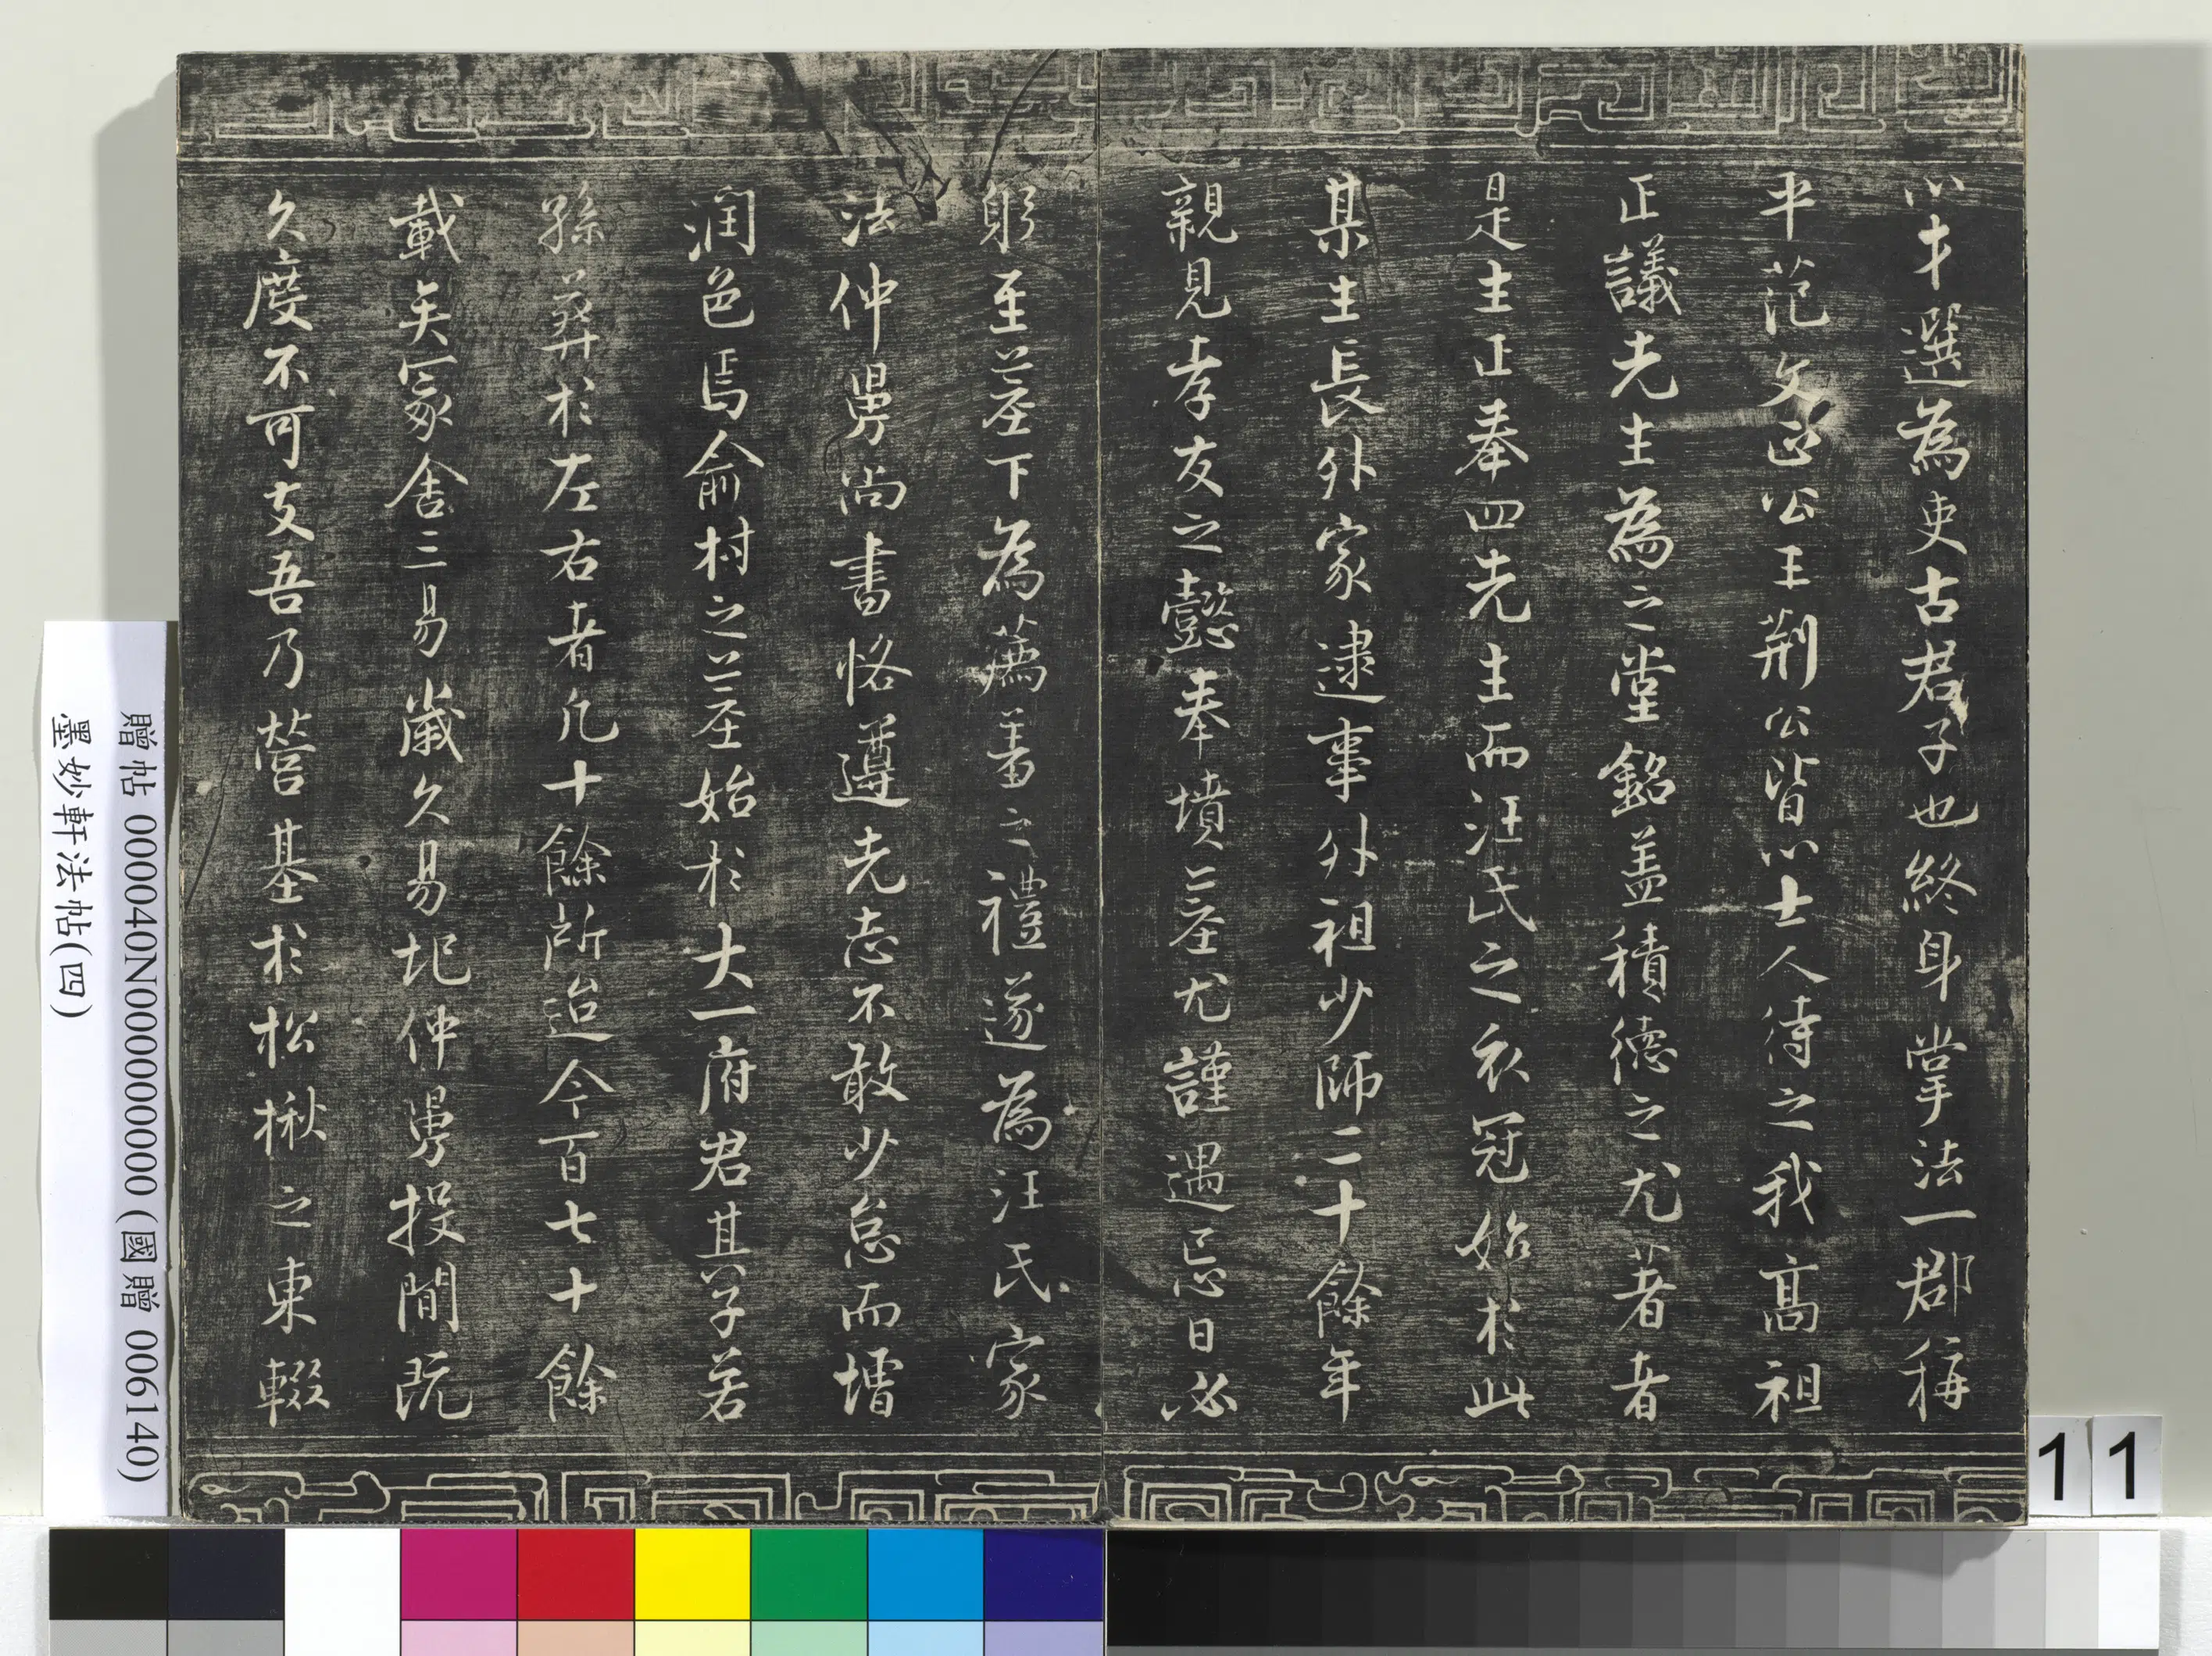 以才選為吏古君子也終身掌法一郡稱
平范文正公王荆公皆以士人待之我高祖
正議先生為之堂銘盖積德之尤著者
是生正奉四先生而汪氏之衣冠始於此
某生長外家逮事外祖少師二十餘年
親見孝友之懿奉墳墓尤謹遇忌日必
躬至墓下為薦羞之禮遂為汪氏家
法仲舅尚書恪遵先志不敢少怠而增
潤色焉俞村之墓始於大一府君其子若
孫葬於左右者凡十餘所迨今百七十餘
載矣冢舍三易歲久易圮仲舅投閒既
久度不可支吾乃營基於松楸之東輟
贈帖 000040N000000000 (國贈 006140)
墨妙軒法帖(四)
11